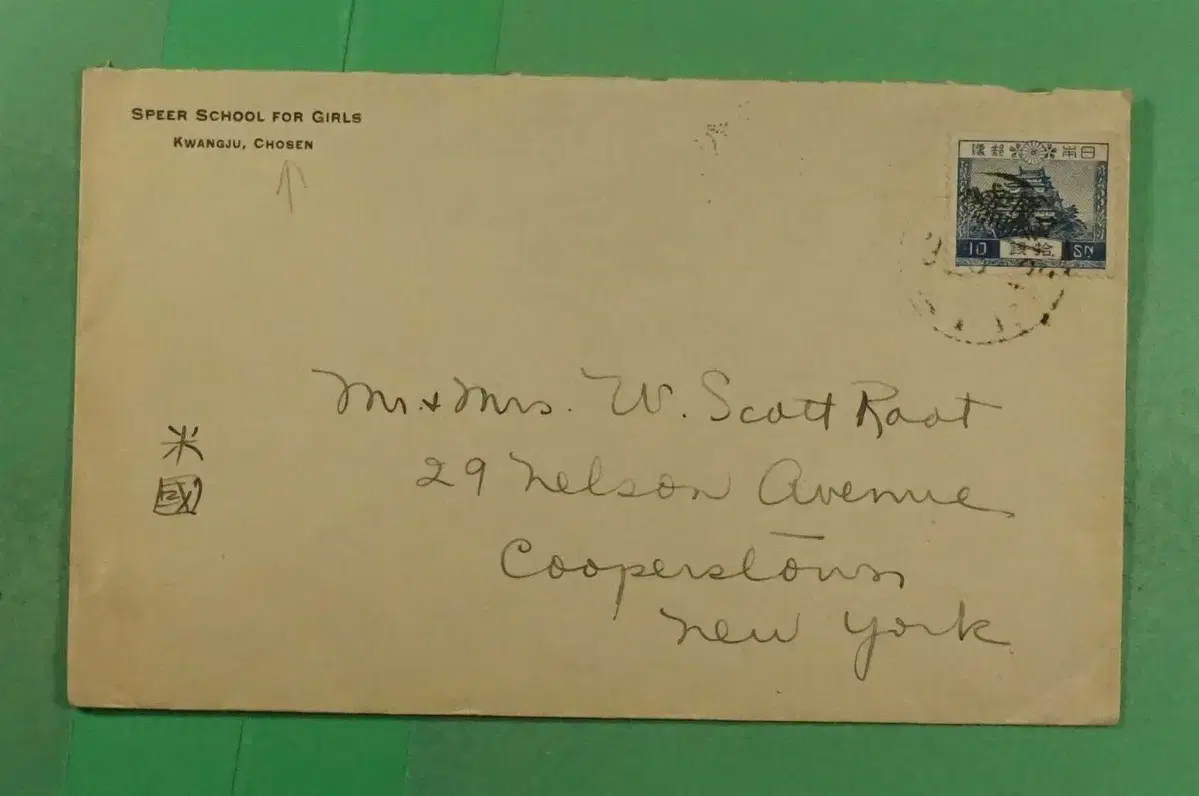 SPEER SCHOOL FOR GIRLS
KWANGJU, CHOSEN
便郵 本日
10 錢拾 SN
Mr. & Mrs. W. Scott Root
29 Nelson Avenue
Cooperstown
New York
米
國